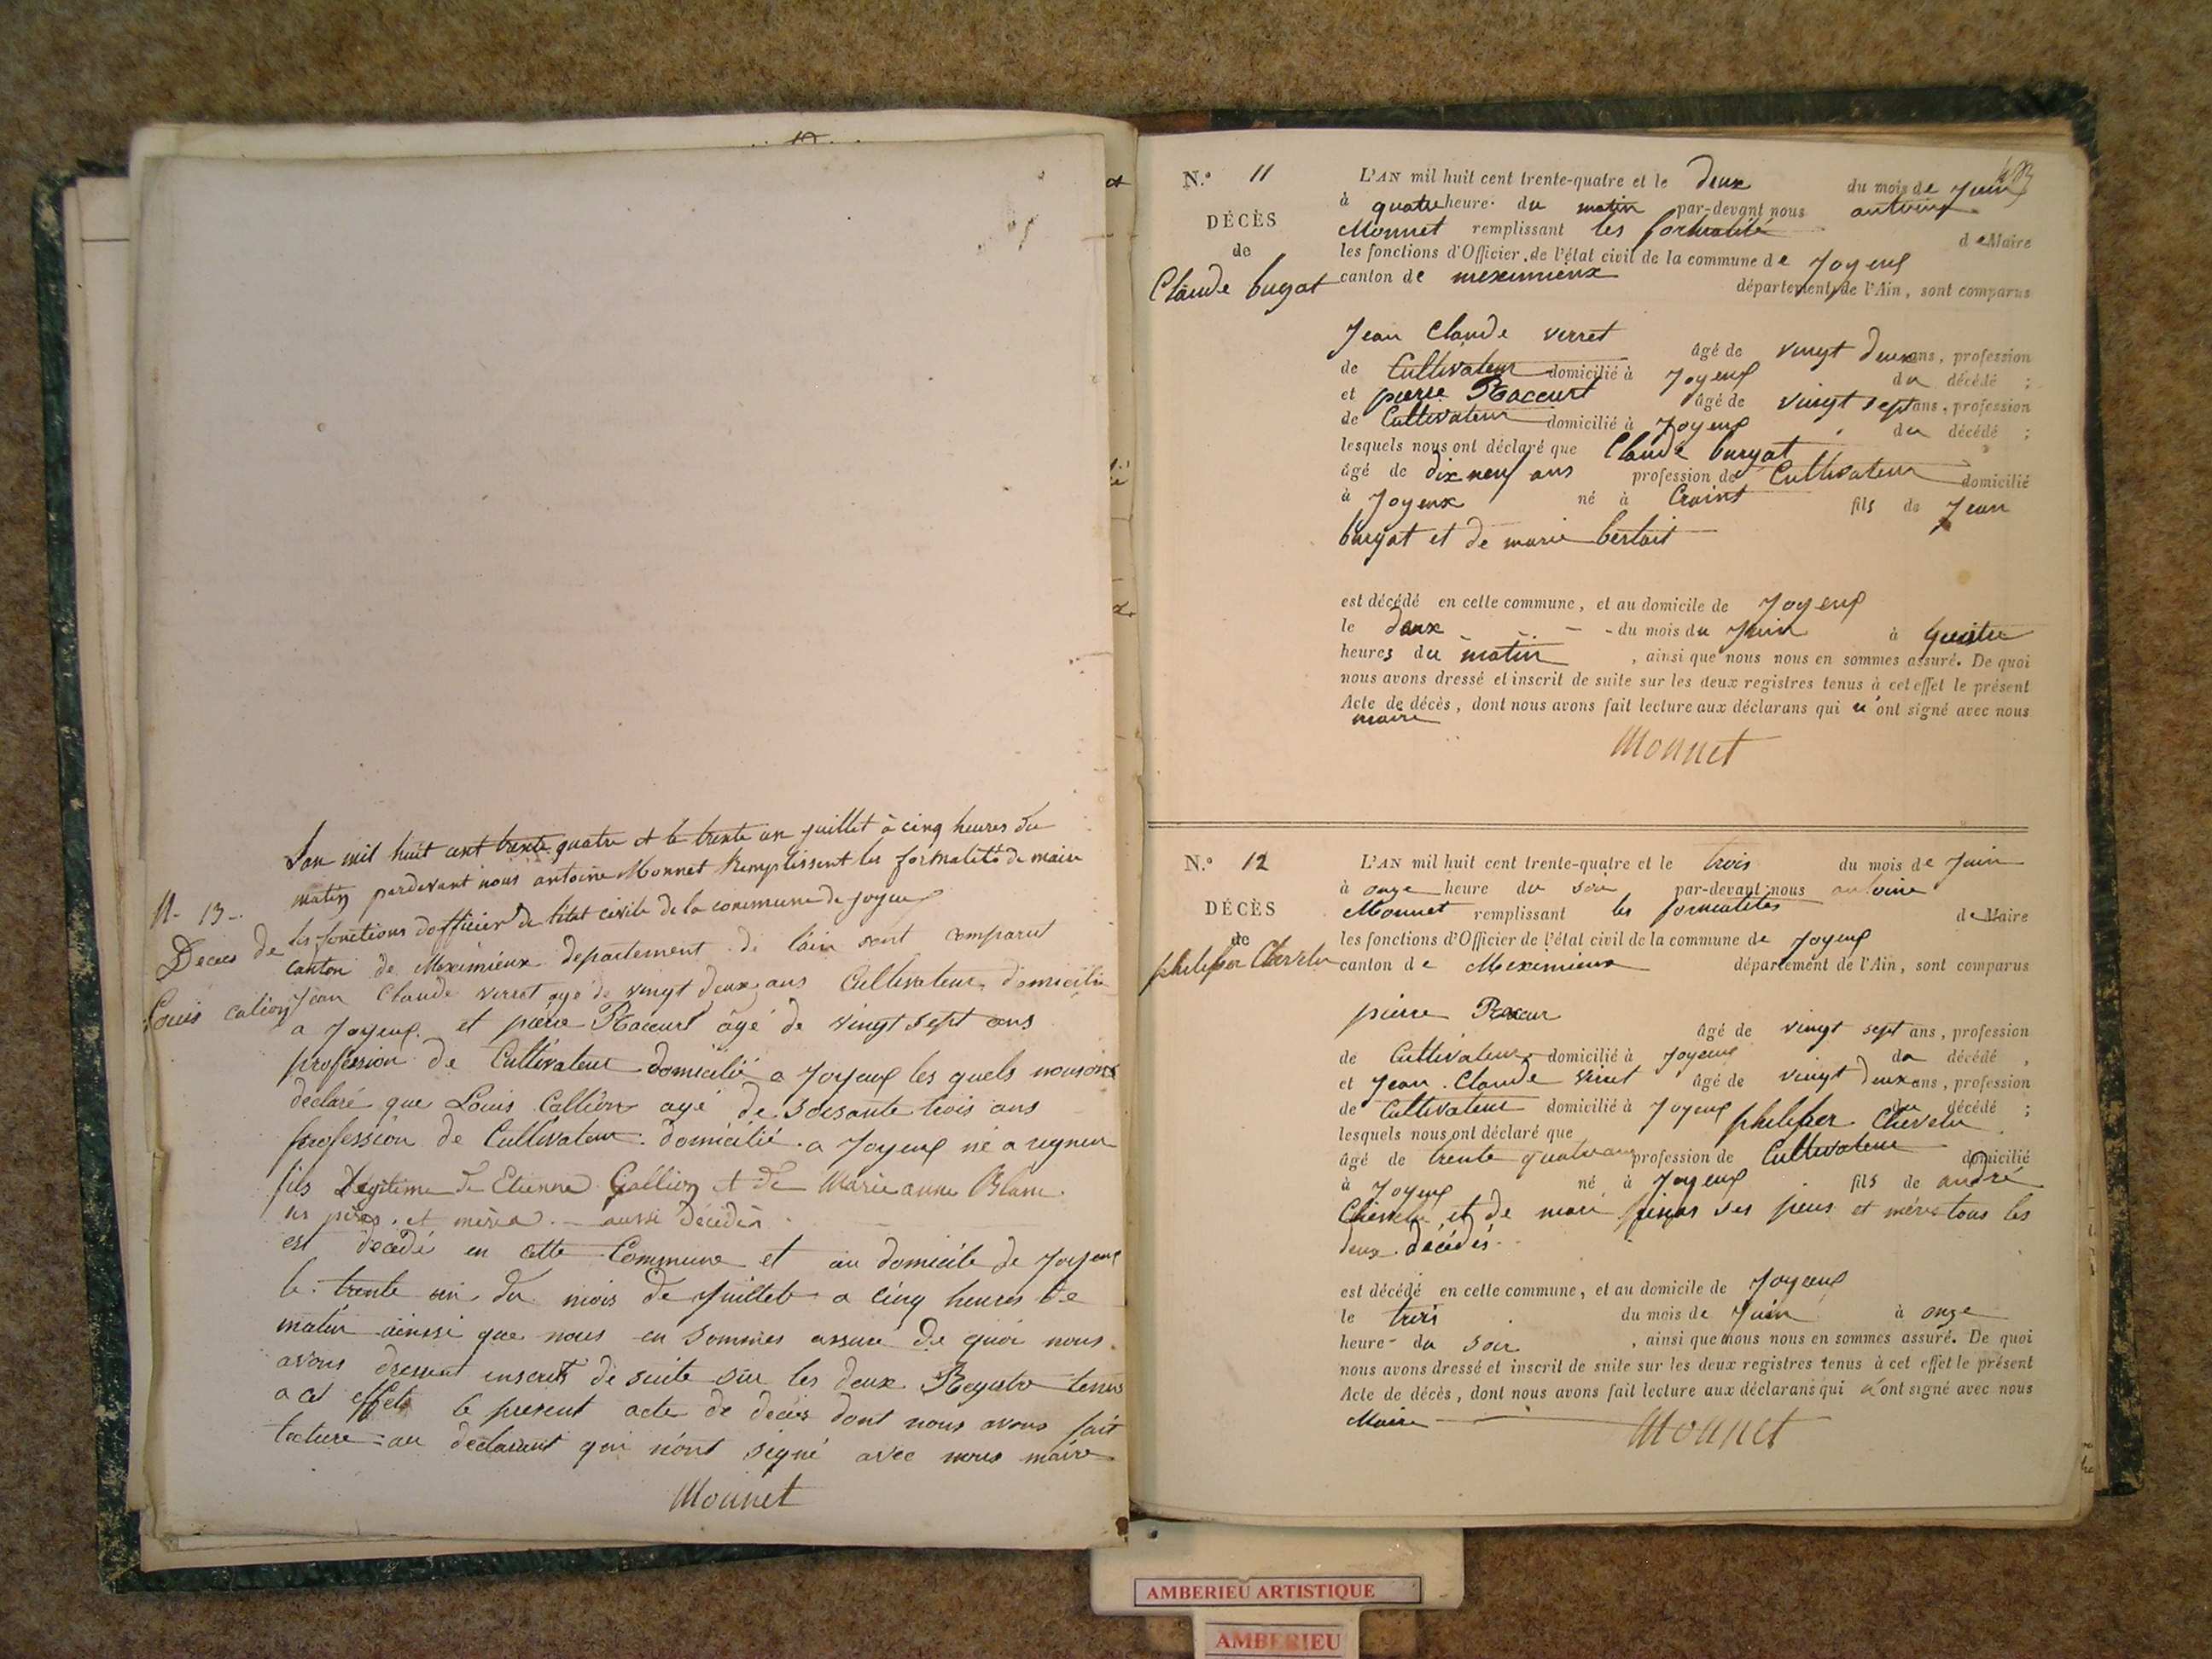 Lan mil huit cent trente quatre et le trente un juillet à cinq heures du
matin pardevant nous antoine Monnet Remplissent les formalités de maire
N. 13
les fonctions dofficier de letat civile de la commune de joyeux
Deces de
canton de Meximieux departement de lain sont comparut
Louis calion
Jean Claude verret agé de vingt deux ans Cultivateur domicilie
a Joyeux et pierre Raccurt âgé de vingt sept ans
profession de Cultivateur domicilié a Joyeux les quels nous ont
declaré que Louis Callion agé de soisante trois ans
profession de Cultivateur domicilié a Joyeux né a
fils Légitime de Etienne Gallion et de Marie anne Blanc
et mères aussi décédés
est decedé en cette Commune et au domicile de Joyeux
le trente un du mois de Juillet a cinq heures de
matin ainssi que nous en sommes assuré de quoi nous
avons inscrit de suite sur les deux Registre tenus
a cet effet le present acte de decés dont nous avons fait
lecture au declarant qui n'ont signé avec nous maire
Monnet
N.º 11
DÉCÈS
de
Claude bugat
L'AN mil huit cent trente-quatre et le deux du mois de Juin
à quatre heure du matin par-devant nous antoine
Monnet remplissant les formalité de Maire
les fonctions d'Officier de l'état civil de la commune de Joyeux
canton de meximieux département de l'Ain, sont comparus
Jean Claude verret âgé de vingt deux ans, profession
de Cultivateur domicilié à Joyeux du décédé ;
et pierre Raccurt âgé de vingt sept ans, profession
de Cultivateur domicilié à Joyeux du décédé ;
lesquels nous ont déclaré que Claude bugat
âgé de dix neuf ans profession de Cultivateur domicilié
à Joyeux né à fils de Jean
bugat et de marie
est décédé en cette commune, et au domicile de Joyeux
le deux du mois du Juin à quatre
heures du matin, ainsi que nous nous en sommes assuré. De quoi
nous avons dressé et inscrit de suite sur les deux registres tenus à cet effet le présent
Acte de décès, dont nous avons fait lecture aux déclarans qui n'ont signé avec nous
maire
Monnet
N.º 12
DÉCÈS
de
philipper Chevelu
L'AN mil huit cent trente-quatre et le trois du mois de Juin
à onze heure du soir par-devant nous antoine
Monnet remplissant les formalités de Maire
les fonctions d'Officier de l'état civil de la commune de Joyeux
canton de Meximieux département de l'Ain, sont comparus
pierre âgé de vingt sept ans, profession
de Cultivateur domicilié à Joyeux du décédé ,
et Jean Claude verret âgé de vingt deux ans, profession
de Cultivateur domicilié à Joyeux du décédé ;
lesquels nous ont déclaré que philipper Chevelu
âgé de trente quatre ans profession de Cultivateur domicilié
à Joyeux né à Joyeux fils de andré
Chevelu et de mari ses peres et mère tous les
deux décédés
est décédé en cette commune, et au domicile de Joyeux
le trois du mois de Juin à onze
heure du soir, ainsi que nous nous en sommes assuré. De quoi
nous avons dressé et inscrit de suite sur les deux registres tenus à cet effet le présent
Acte de décès, dont nous avons fait lecture aux déclarans qui n'ont signé avec nous
Maire
Monnet
AMBERIEU ARTISTIQUE
AMBERIEU